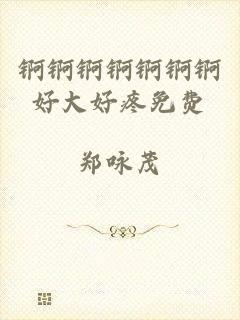 锕锕锕锕锕锕锕
好大好疼免费
郑咏茂